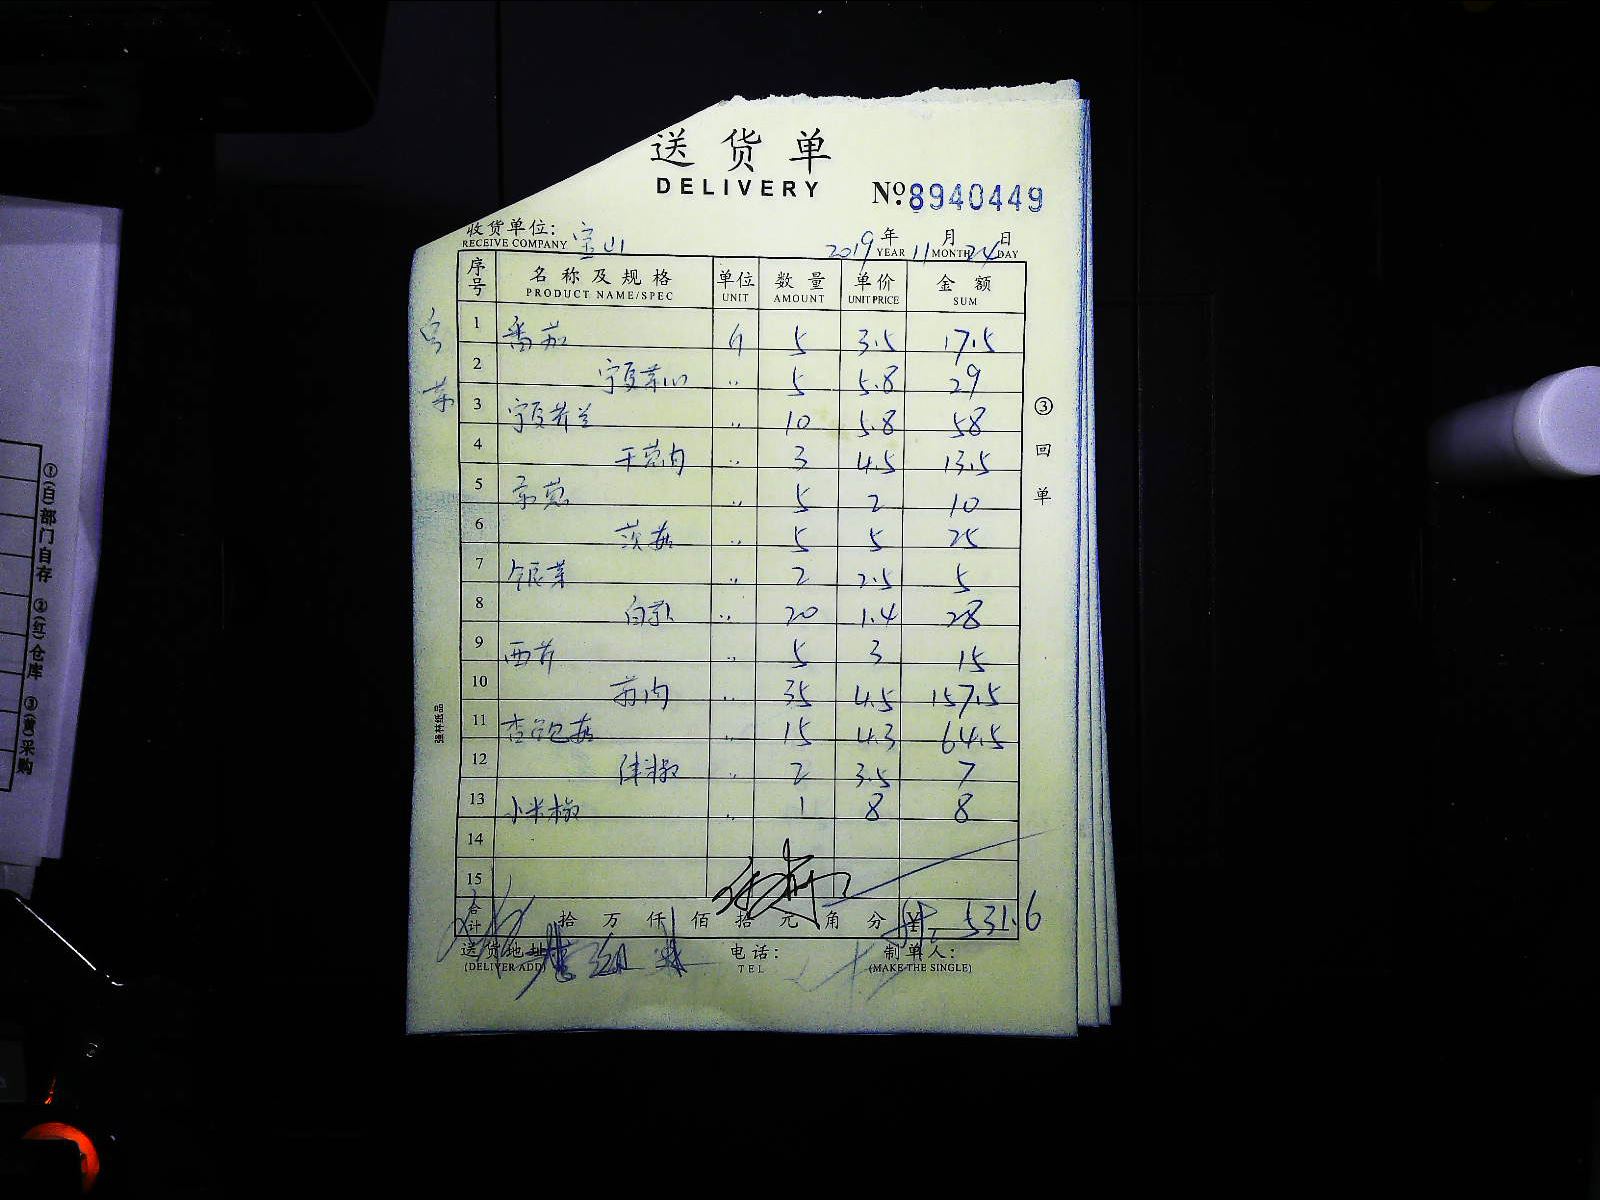 送货单
DELIVERY
№.8940449
收货单位: 宝山 2019年11月24日
RECEIVE COMPANY YEAR MONTH DAY
序号 名称及规格 单位 数量 单价 金额
PRODUCT NAME/SPEC UNIT AMOUNT UNIT PRICE SUM
1 番茄 斤 5 3.5 17.5
2 宁夏菜心 〃 5 5.8 29
3 宁夏芥兰 〃 10 5.8 58
4 干葱肉 〃 3 4.5 13.5
5 京葱 〃 5 2 10
6 茨菇 〃 5 5 25
7 银芽 〃 2 2.5 5
8 〃 20 1.4 28
9 西芹 〃 5 3 15
10 〃 35 4.5 157.5
11 杏鲍菇 〃 15 4.3 64.5
12 〃 2 3.5 7
13 小米椒 〃 1 8 8
14
15
合计 拾 万 仟 佰 拾 元 角 分 ¥ 531.6
送货地址 电话: 制单人:
(DELIVER ADD) TEL (MAKE THE SINGLE)
③回单
强林纸品
①(白)部门自存 ②(红)仓库 ③(黄)采购